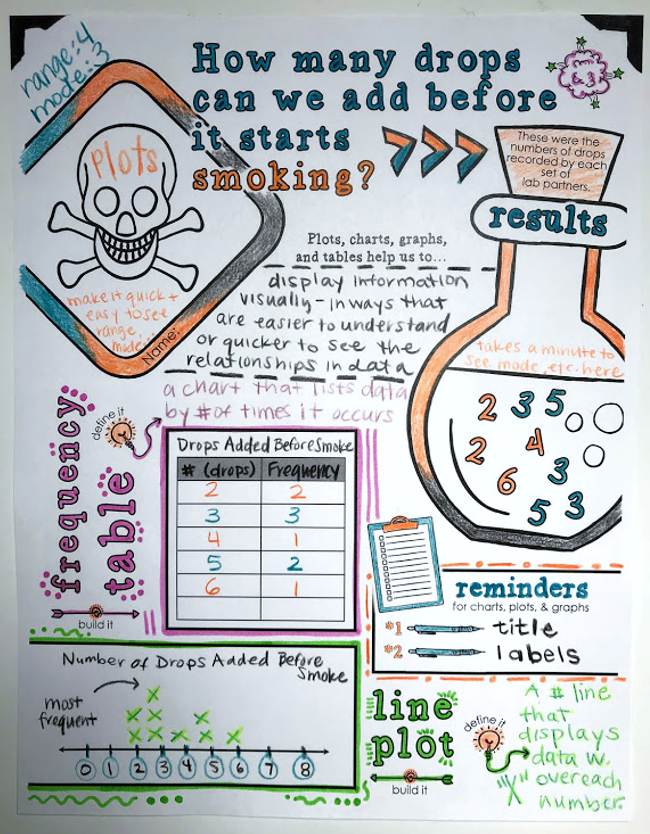 range: 4
mode: 3
How many drops
can we add before
it starts
smoking?
& 3
These were the
numbers of drops
recorded by each
set of
lab partners.
results
Plots
make it quick +
easy to see
range,
mode...
Name:
Plots, charts, graphs,
and tables help us to...
display information
visually - in ways that
are easier to understand
or quicker to see the
relationships in data
takes a minute to
see mode, etc. here
2 3 5
2 4
6 3
5 3
frequency
table
define it
a chart that lists data
by # of times it occurs
Drops Added Before Smoke
# (drops) Frequency
2 2
3 3
4 1
5 2
6 1
build it
reminders
for charts, plots, & graphs
#1 title
#2 labels
Number of Drops Added Before
Smoke
most
frequent
X
X X X
X X X X X
0 1 2 3 4 5 6 7 8
line
plot
build it
define it
A # line
that
displays
data w.
"X" over each
number.